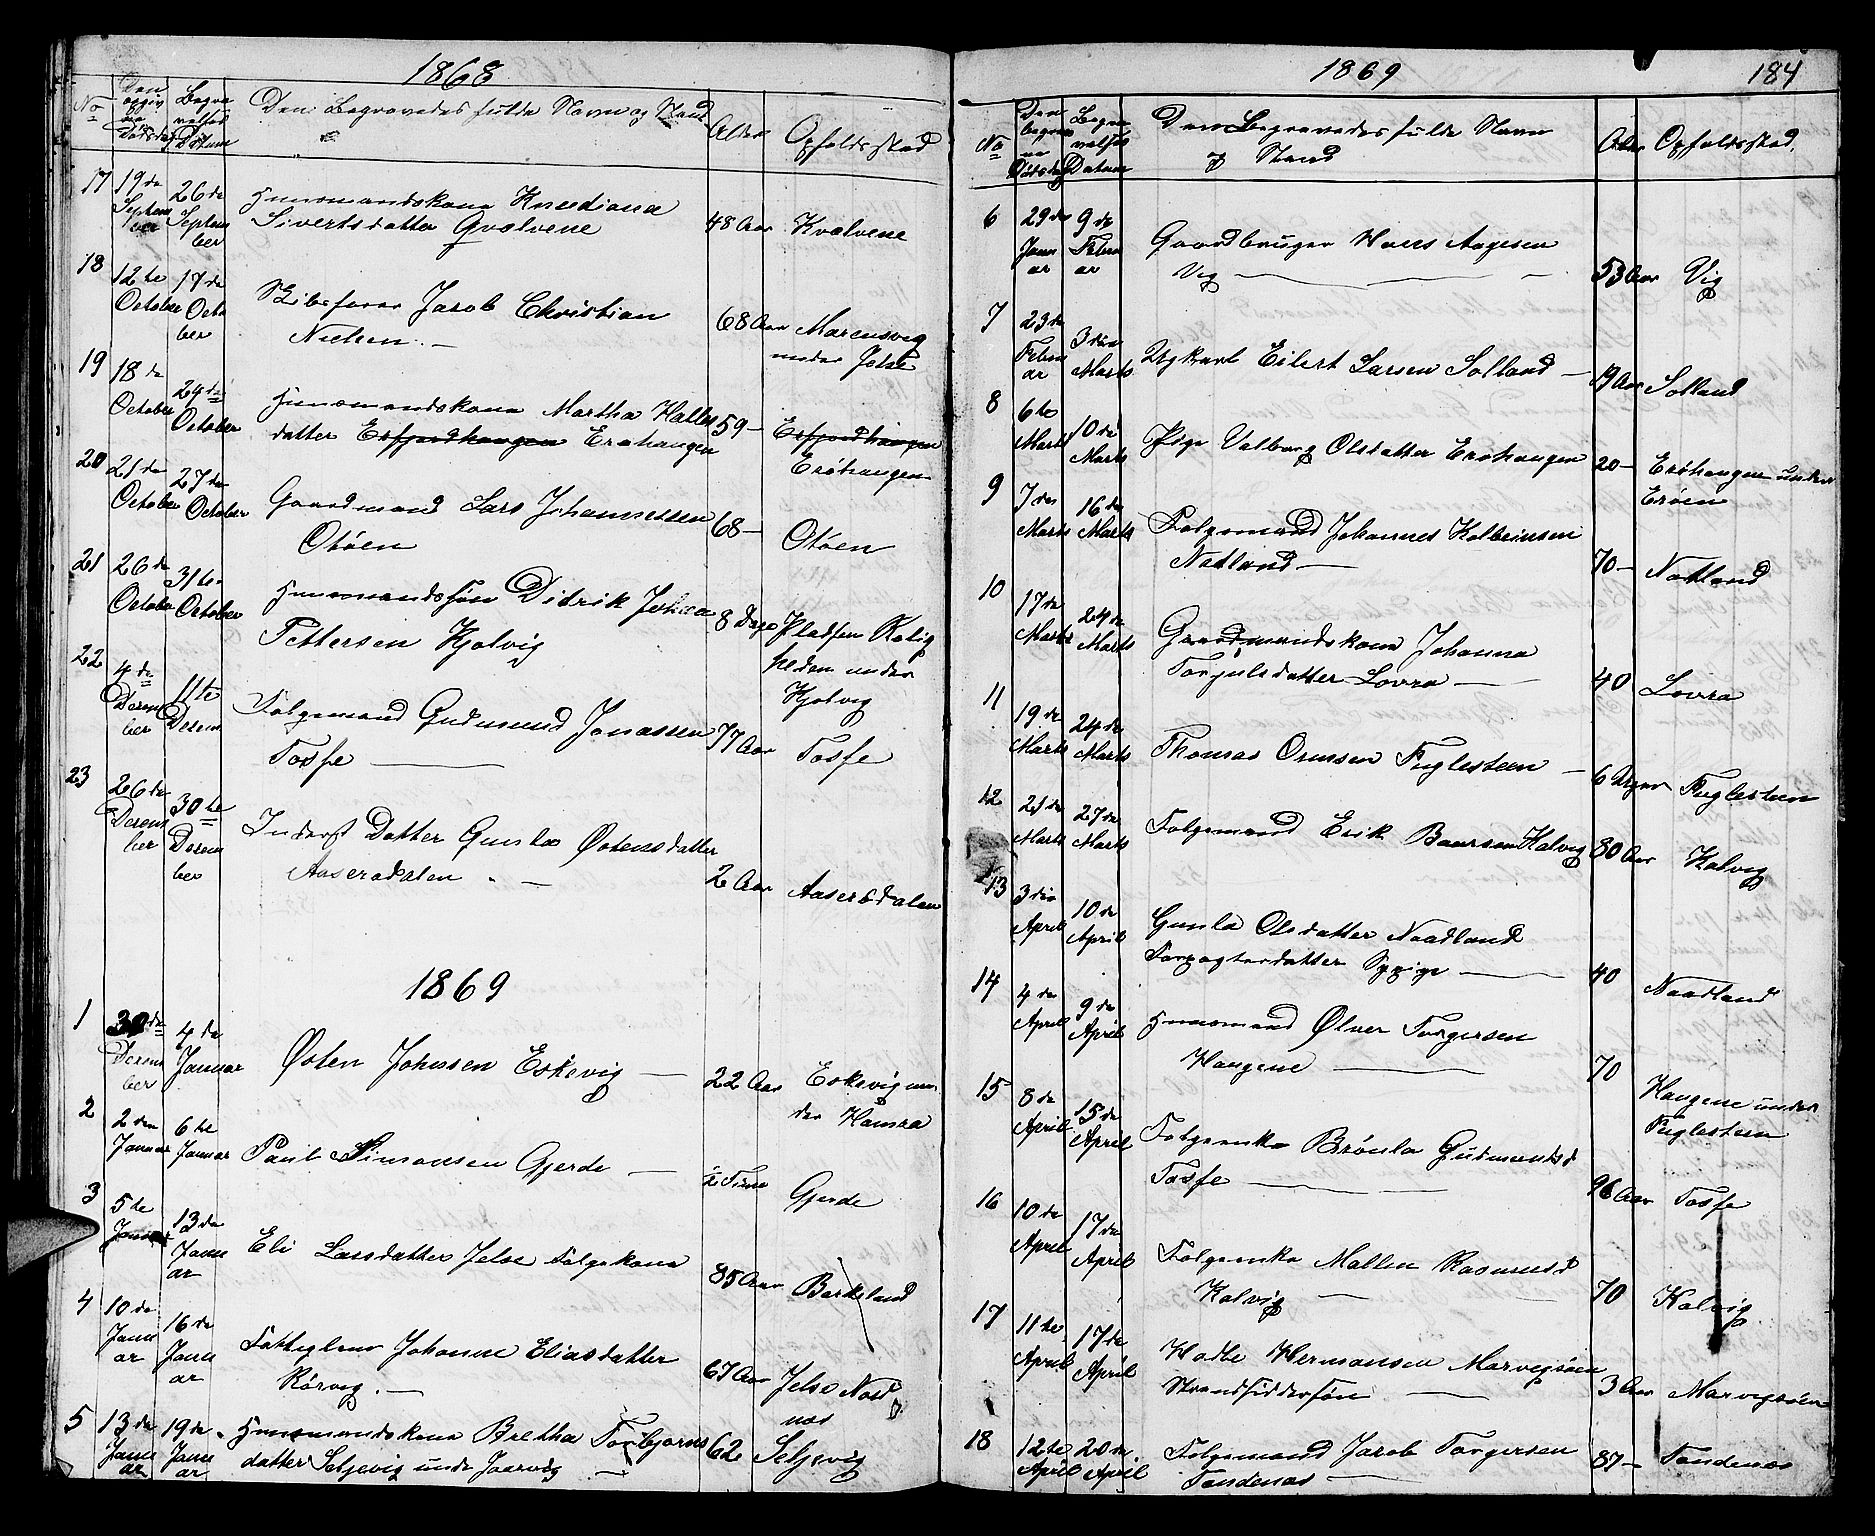 1868
No Den opgivne Dødsdag Begravelses Datum Den Begravedes fulde Navn og Stand Alder Opholdssted
17 19de September 26de September Huusmandskone
Sivertsdatter Qvalvene 48 Aar Kvalvene
18 12te October 17de October Skibsfører Jacob Christian
Nielsen. — 68 Aar Marcusvig
under Jelse
19 18de October 24de October Huusmandskone Martha Halles
datter Erfjordhaugen Erøhaugen 59— Erfjordhaugen
Erøhaugen
20 21de October 27de October Gaardmand Lars Johannessen
Otøen 68— Otøen
21 26de October 31te October Huusmandssøn Didrik Johan
Pettersen Kjølvig 8 Dage Pladsen Rolig
heden under
Kjølvig
22 4de December 11te Decem Følgemand Gudmund Jonassen
Tosfe — 77 Aar Tosfe
23 26de December 30te December Inderst Datter Gunla Østensdatter
Aasersdalen — 2 Aar Aasersdalen
1869
1 30de December 4de Januar Østen Johnsen Eskevig — 22 Aar Eskevig un
der Hamra
2 2den Januar 6te Januar Paul Simonsen Gjerde — ½ Time Gjerde
3 5te Januar 13de Januar Eli Larsdatter Jelse Følgekone 85 Aar Barkeland
4 10de Januar 16de Januar Fattiglem Johanne Eliasdatter
Rørvig. — 67 Aar Jelse
5 13de Januar 19de Januar Huusmandskone Bretha Torbjørns
datter Seljevig unde Jaarvig — 62 Seljevig
1869 184
No Den begravne Dødsdag Begravelses Datum Den Begravedes fulde Navn
og Stand Alder Opholdssted.
6 29de Januar 9de Februar Gaardbruger Hans Aagesen
Vig — 53 Aar Vig
7 23de Februar 3die Marts Ungkarl Eilert Larsen Solland — 19 Aar Solland
8 6te Marts 10de Marts Pige Valborg Olsdatter Erøhaugen 20— Erøhaugen under
Erøen
9 7de Marts 16de Marts Følgemand Johannes Kolbeinsen
Natland — 70— Natland
10 17de Marts 24de Marts Gaardmandskone Johanna
Torjulsdatter Lovra — 40 Lovra
11 19de Marts 24de Marts Thomas Ormsen Fuglesteen — 6 Uger Fuglesteen
12 21de Marts 27de Marts Følgemand Erik Baarsen Kalvig 80 Aar Kalvig
13 3die April 10de April Gunla Olsdatter Naadland
Forpagterdatter — 40 Naadland
14 4de April 9de April Huusmand Ølver Torgersen
Haugene — 70 Haugene under
Fuglesteen
15 8de April 15de April Følgeenke Brønla Gudmundsd
Tosfe — 96 Aar Tosfe
16 10de April 17de April Følgeenke Mallen Rasmusd
Kalvig — 70 Kalvig
17 11te April 17de April Hermansen Marvigsøen
Strandsiddersøn — 3 Aar Marvigsøen
18 12te April 20de April Følgemand Jacob Torgersen
Tandenæs — 87— Tandenæs